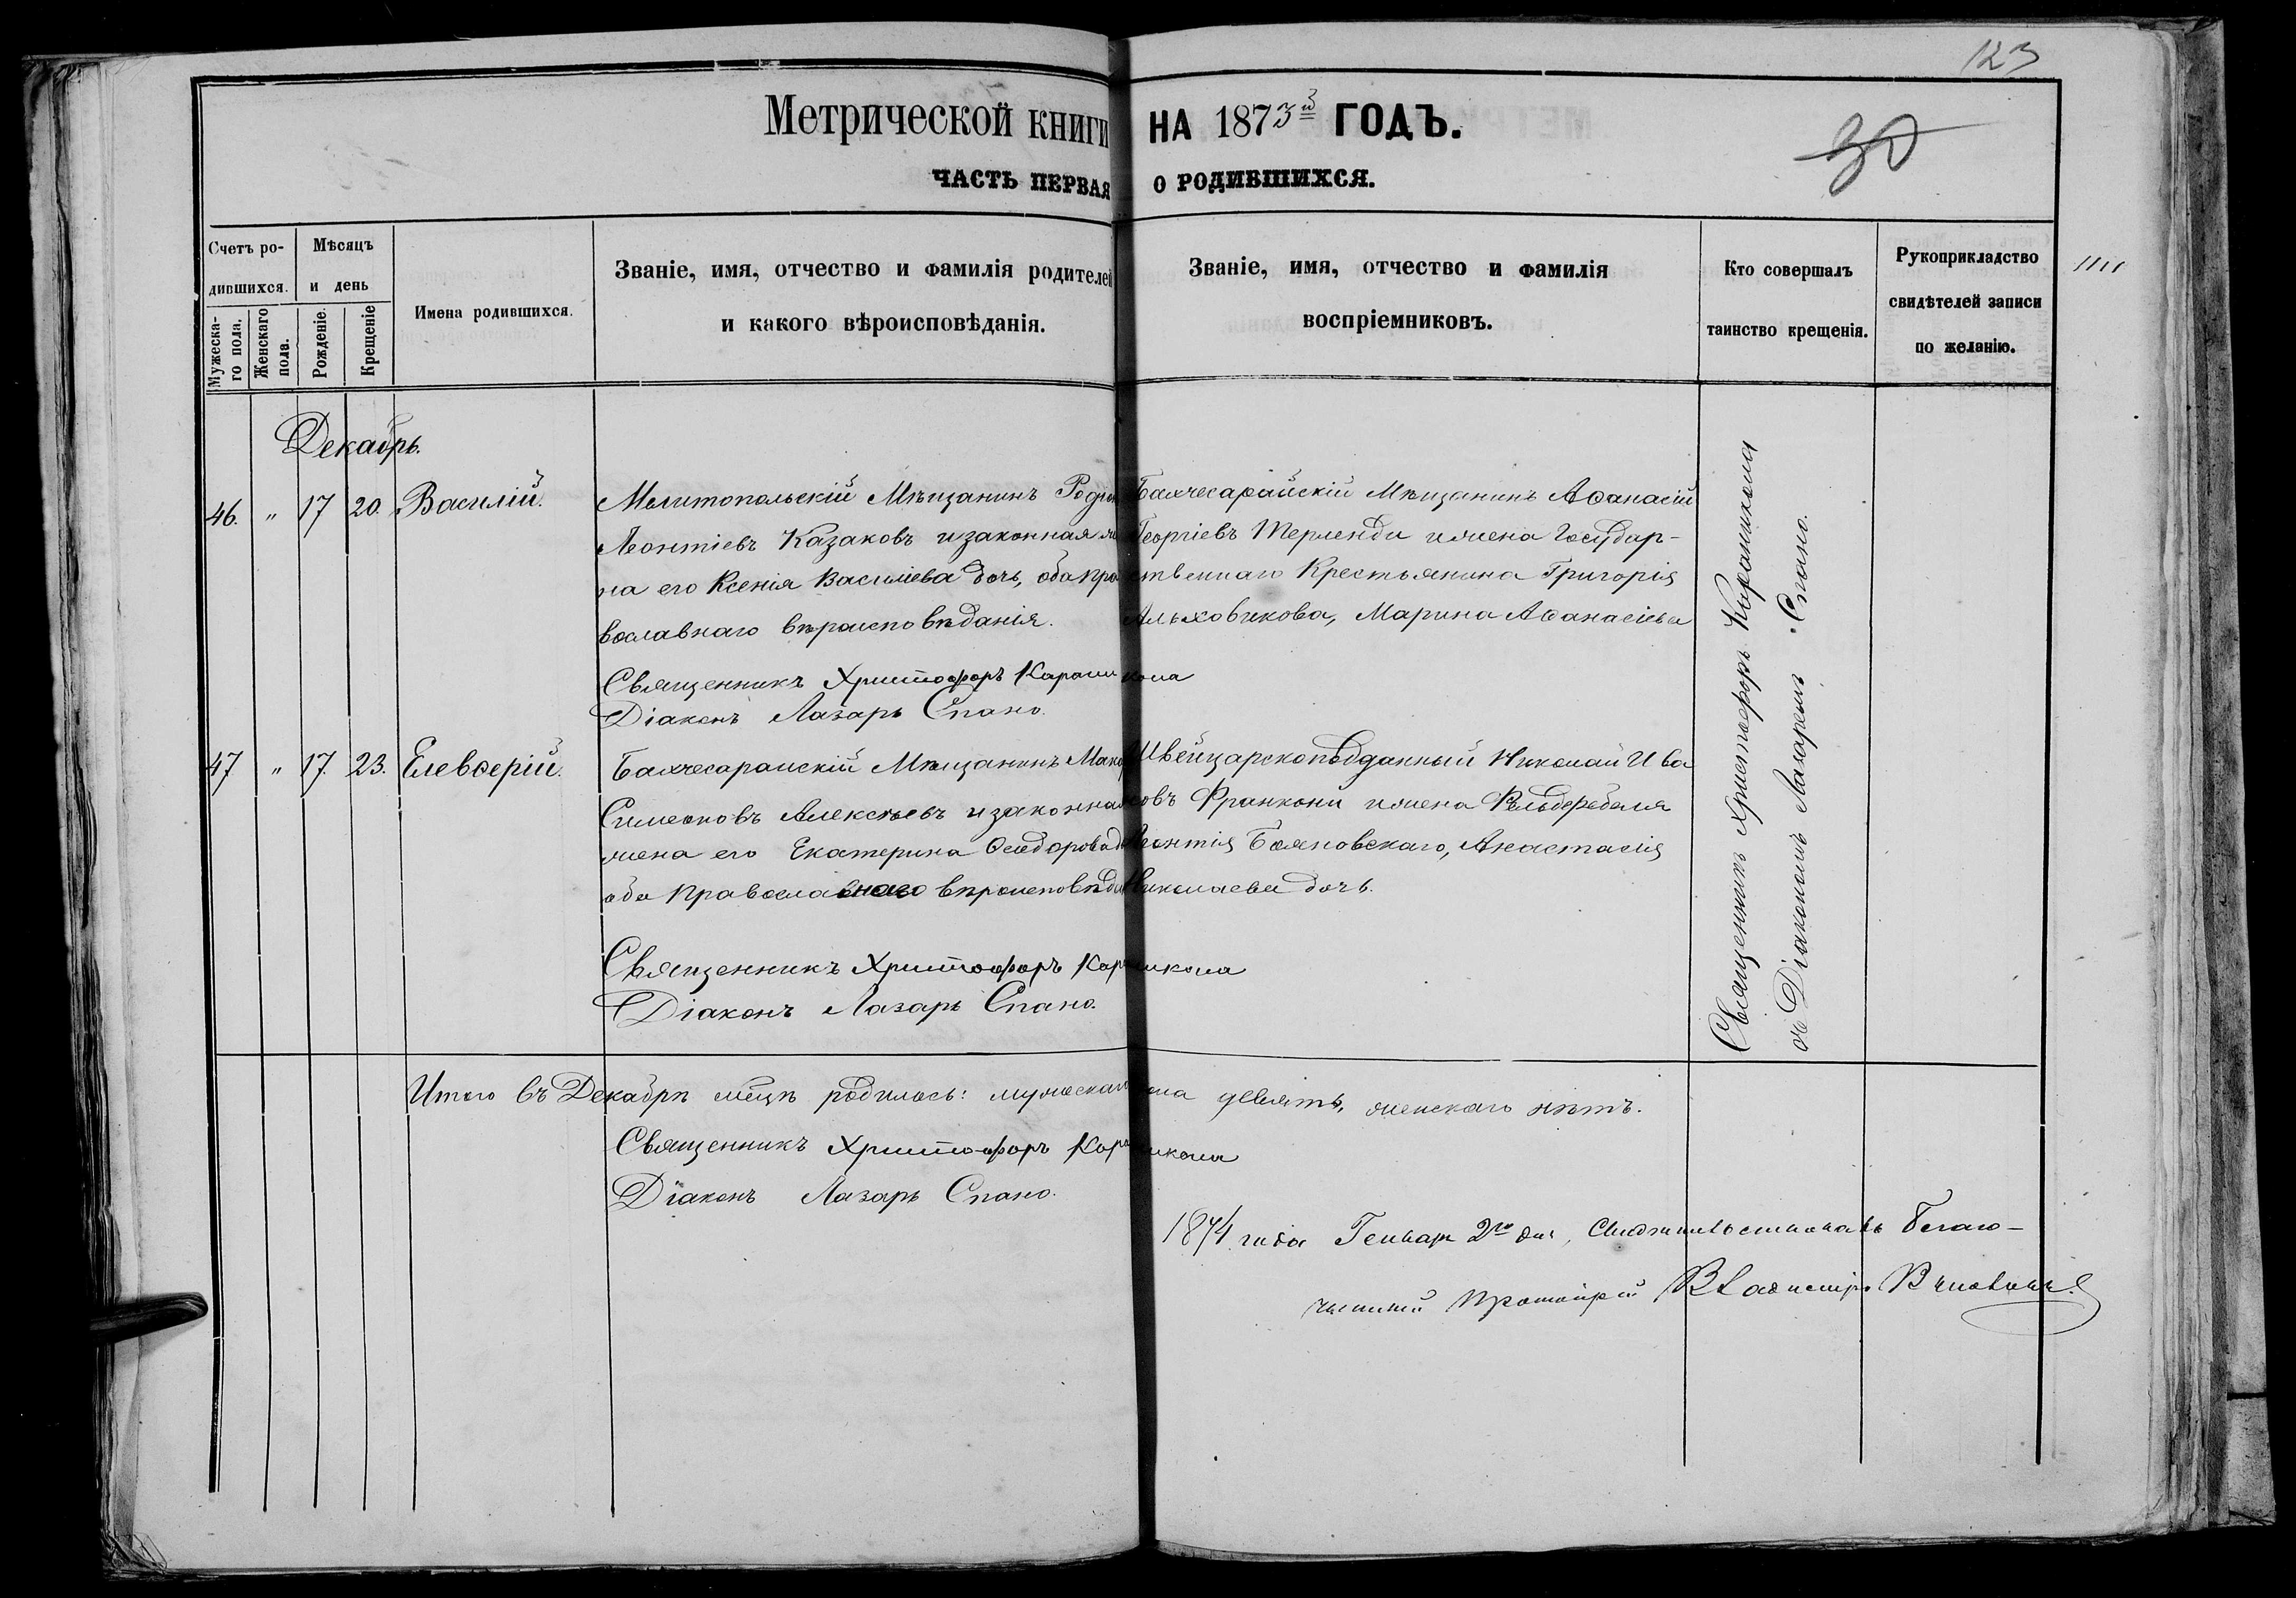 123
Метрической книги НА 1873й ГОДЪ.
30
ЧАСТЬ ПЕРВАЯ О РОДИВШИХСЯ.
Счетъ ро-
дившихся.
Мужеска-
го пола.
Женскаго
пола.
Мѣсяцъ
и день
Рожденіе.
Крещеніе
Имена родившихся.
Званіе, имя, отчество и фамилія родителей
и какого вѣроисповѣданія.
Званіе, имя, отчество и фамилія
воспріемниковъ.
Кто совершалъ
таинство крещенія.
Рукоприкладство
свидѣтелей записи
по желанію.
Декабрь.
46. " 17 20. Василій.
Мелитопольскій Мѣщанинъ Родіонъ
Леонтіевъ Казаковъ и законная же
на его Ксенія Василіева дочь, оба пра
вославнаго вѣроисповѣданія.
Священникъ Христофоръ Карашикола
Діаконъ Лазарь Спано.
Бахчесарайскій Мѣщанинъ Аѳанасій
Георгіевъ Терленди и жена Государ-
ственнаго Крестьянина Григорія
Альховикова, Марина Аѳанасіева
47 " 17. 23. Елевѳерій.
Бахчесарайскій Мѣщанинъ
Симеоновъ Алексѣевъ и законная
жена его Екатерина Ѳеодорова
оба православнаго
Священникъ Христофоръ Карашикола
Діаконъ Лазарь Спано.
Швейцарскоподданный Николай Ива
новъ Франкони и жена Фельдфебеля
Леонтія Бояновскаго, Анастасія
Николаева дочь.
Священникъ Христофоръ Карашикола
съ Діакономъ Лазаремъ Спано.
Итого въ Декабрѣ мѣцѣ родилось: мужескаго пола девять, женскаго нѣтъ.
Священникъ Христофоръ Карашикола
Діаконъ Лазарь Спано.
1874 года Генваря 2го дня, Свидѣтельствовалъ Благо-
чинный Протоіерей Владиміръ